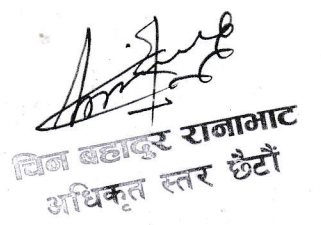 चिन बहादुर रानाभाट
अधिकृत स्तर छैटौं